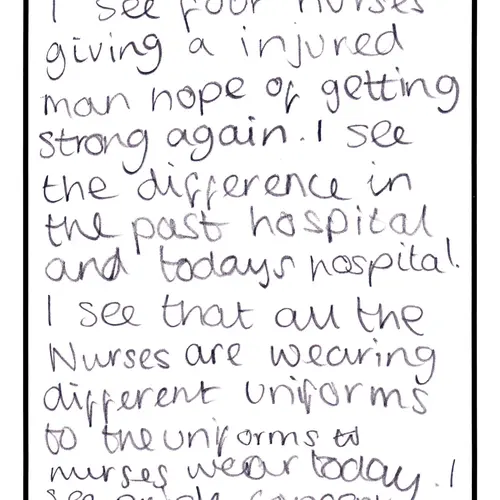 I see four nurses
giving a injured
man hope of getting
strong again. I see
the difference in
the past hospital
and todays hospital.
I see that all the
Nurses are wearing
different uniforms
to the uniforms
nurses wear today. I
see